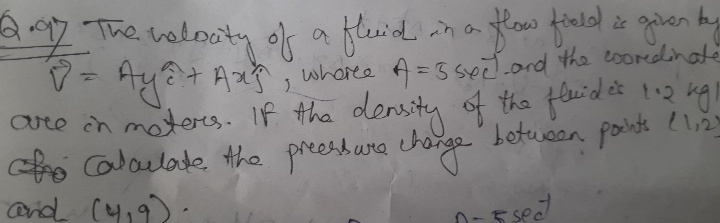 Q.97 The velocity of a fluid in a flow field is given by
V⃗ = Ayî + Axĵ, where A = 5 sec⁻¹ and the coordinate
are in meters. If the density of the fluid is 1.2 kg/
Calculate the pressure change between points (1,2)
and (4,9).
A = 5 sec⁻¹